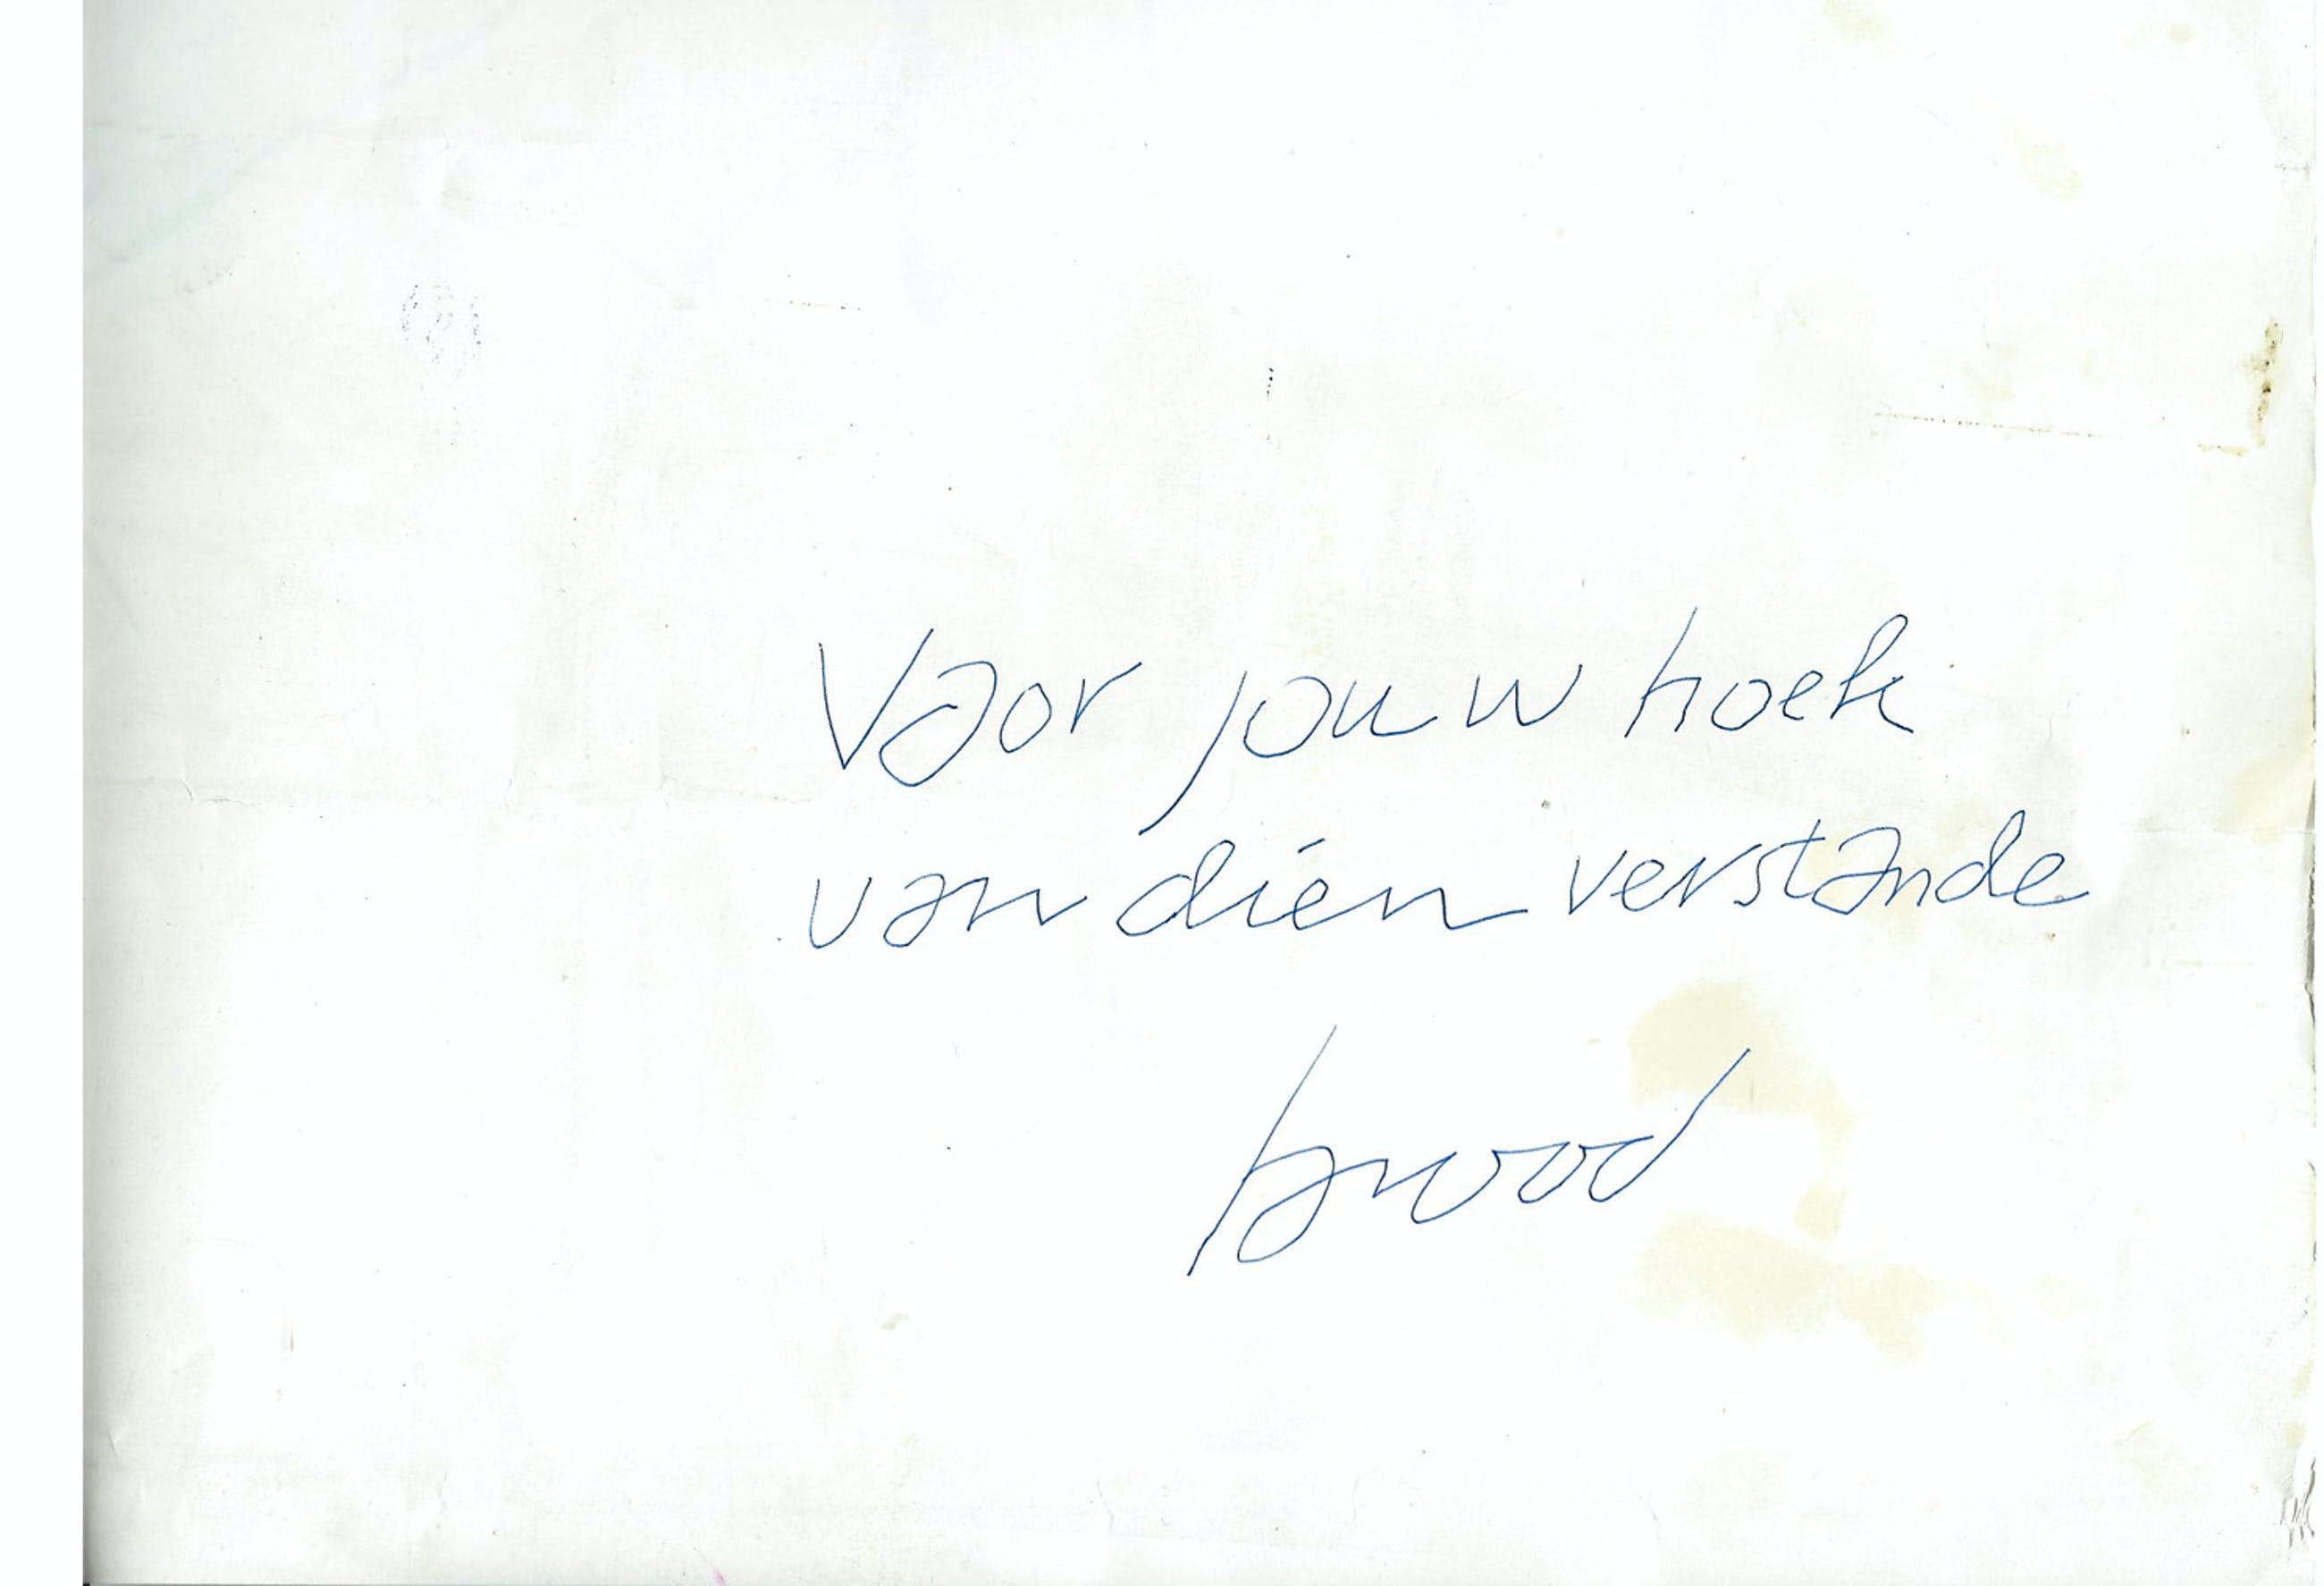 Voor jouw hoek
van diën verstande